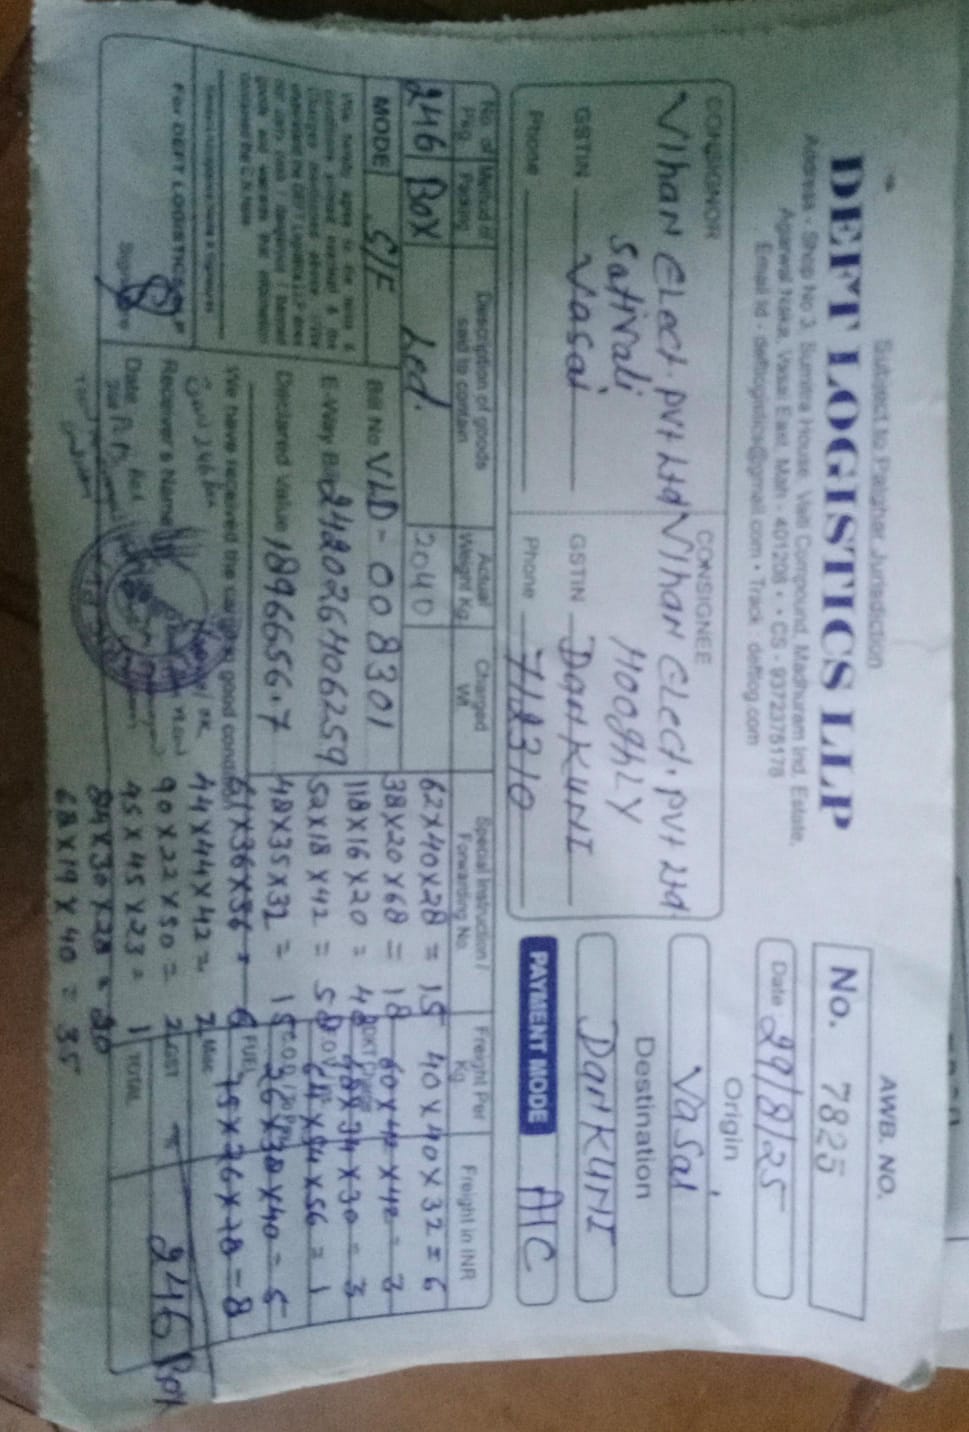 Subject to Palghar Jurisdiction
DEFT LOGISTICS LLP
Address - Shop No 3, Sumitra House, Van Compound, Madhuram Ind. Estate,
Agarwal Naka, Vasai East, Mah - 401208 • • CS - 9372375178
Email Id - deftlogistics@gmail.com • Track - deftlog.com
AWB. NO.
No. 7825
Date 29/8/25
CONSIGNOR
Vihan Elect. Pvt Ltd
Sativali
GSTIN Vasai
Phone
CONSIGNEE
Vihan Elect. Pvt Ltd
Hooghly
GSTIN DANKUNI
Phone 712310
Origin
Vasai
Destination
DANKUNI
PAYMENT MODE A/C
No. of Pkg.
Method of Packing
Description of goods said to contain
Actual Weight Kg
Charged Wt.
Special Instruction / Forwarding No.
Freight Per Kg
Freight in INR
246 Box Led. 2040
MODE S/F
Bill No VLD-008301
E-Way Bill 242026406259
Declared Value 1896656.7
62x40x28 = 15
38x20x68 = 18
118x16x20 = 48
52x18x42 = 50
48x35x32 = 15
61x36x56 = 6
44x44x42 = 2
90x22x50 = 2
45x45x23 = 1
84x30x28 = 30
68x19x40 = 35
40x40x32 = 6
60x42x42 = 3
48x34x30 = 3
64x54x56 = 1
26x38x40 = 5
75x26x28 = 8
FUEL
GST
TOTAL
246 Box
We have received the cargo in good condition
Receiver's Name
Date
For DEFT LOGISTICS LLP
Signature